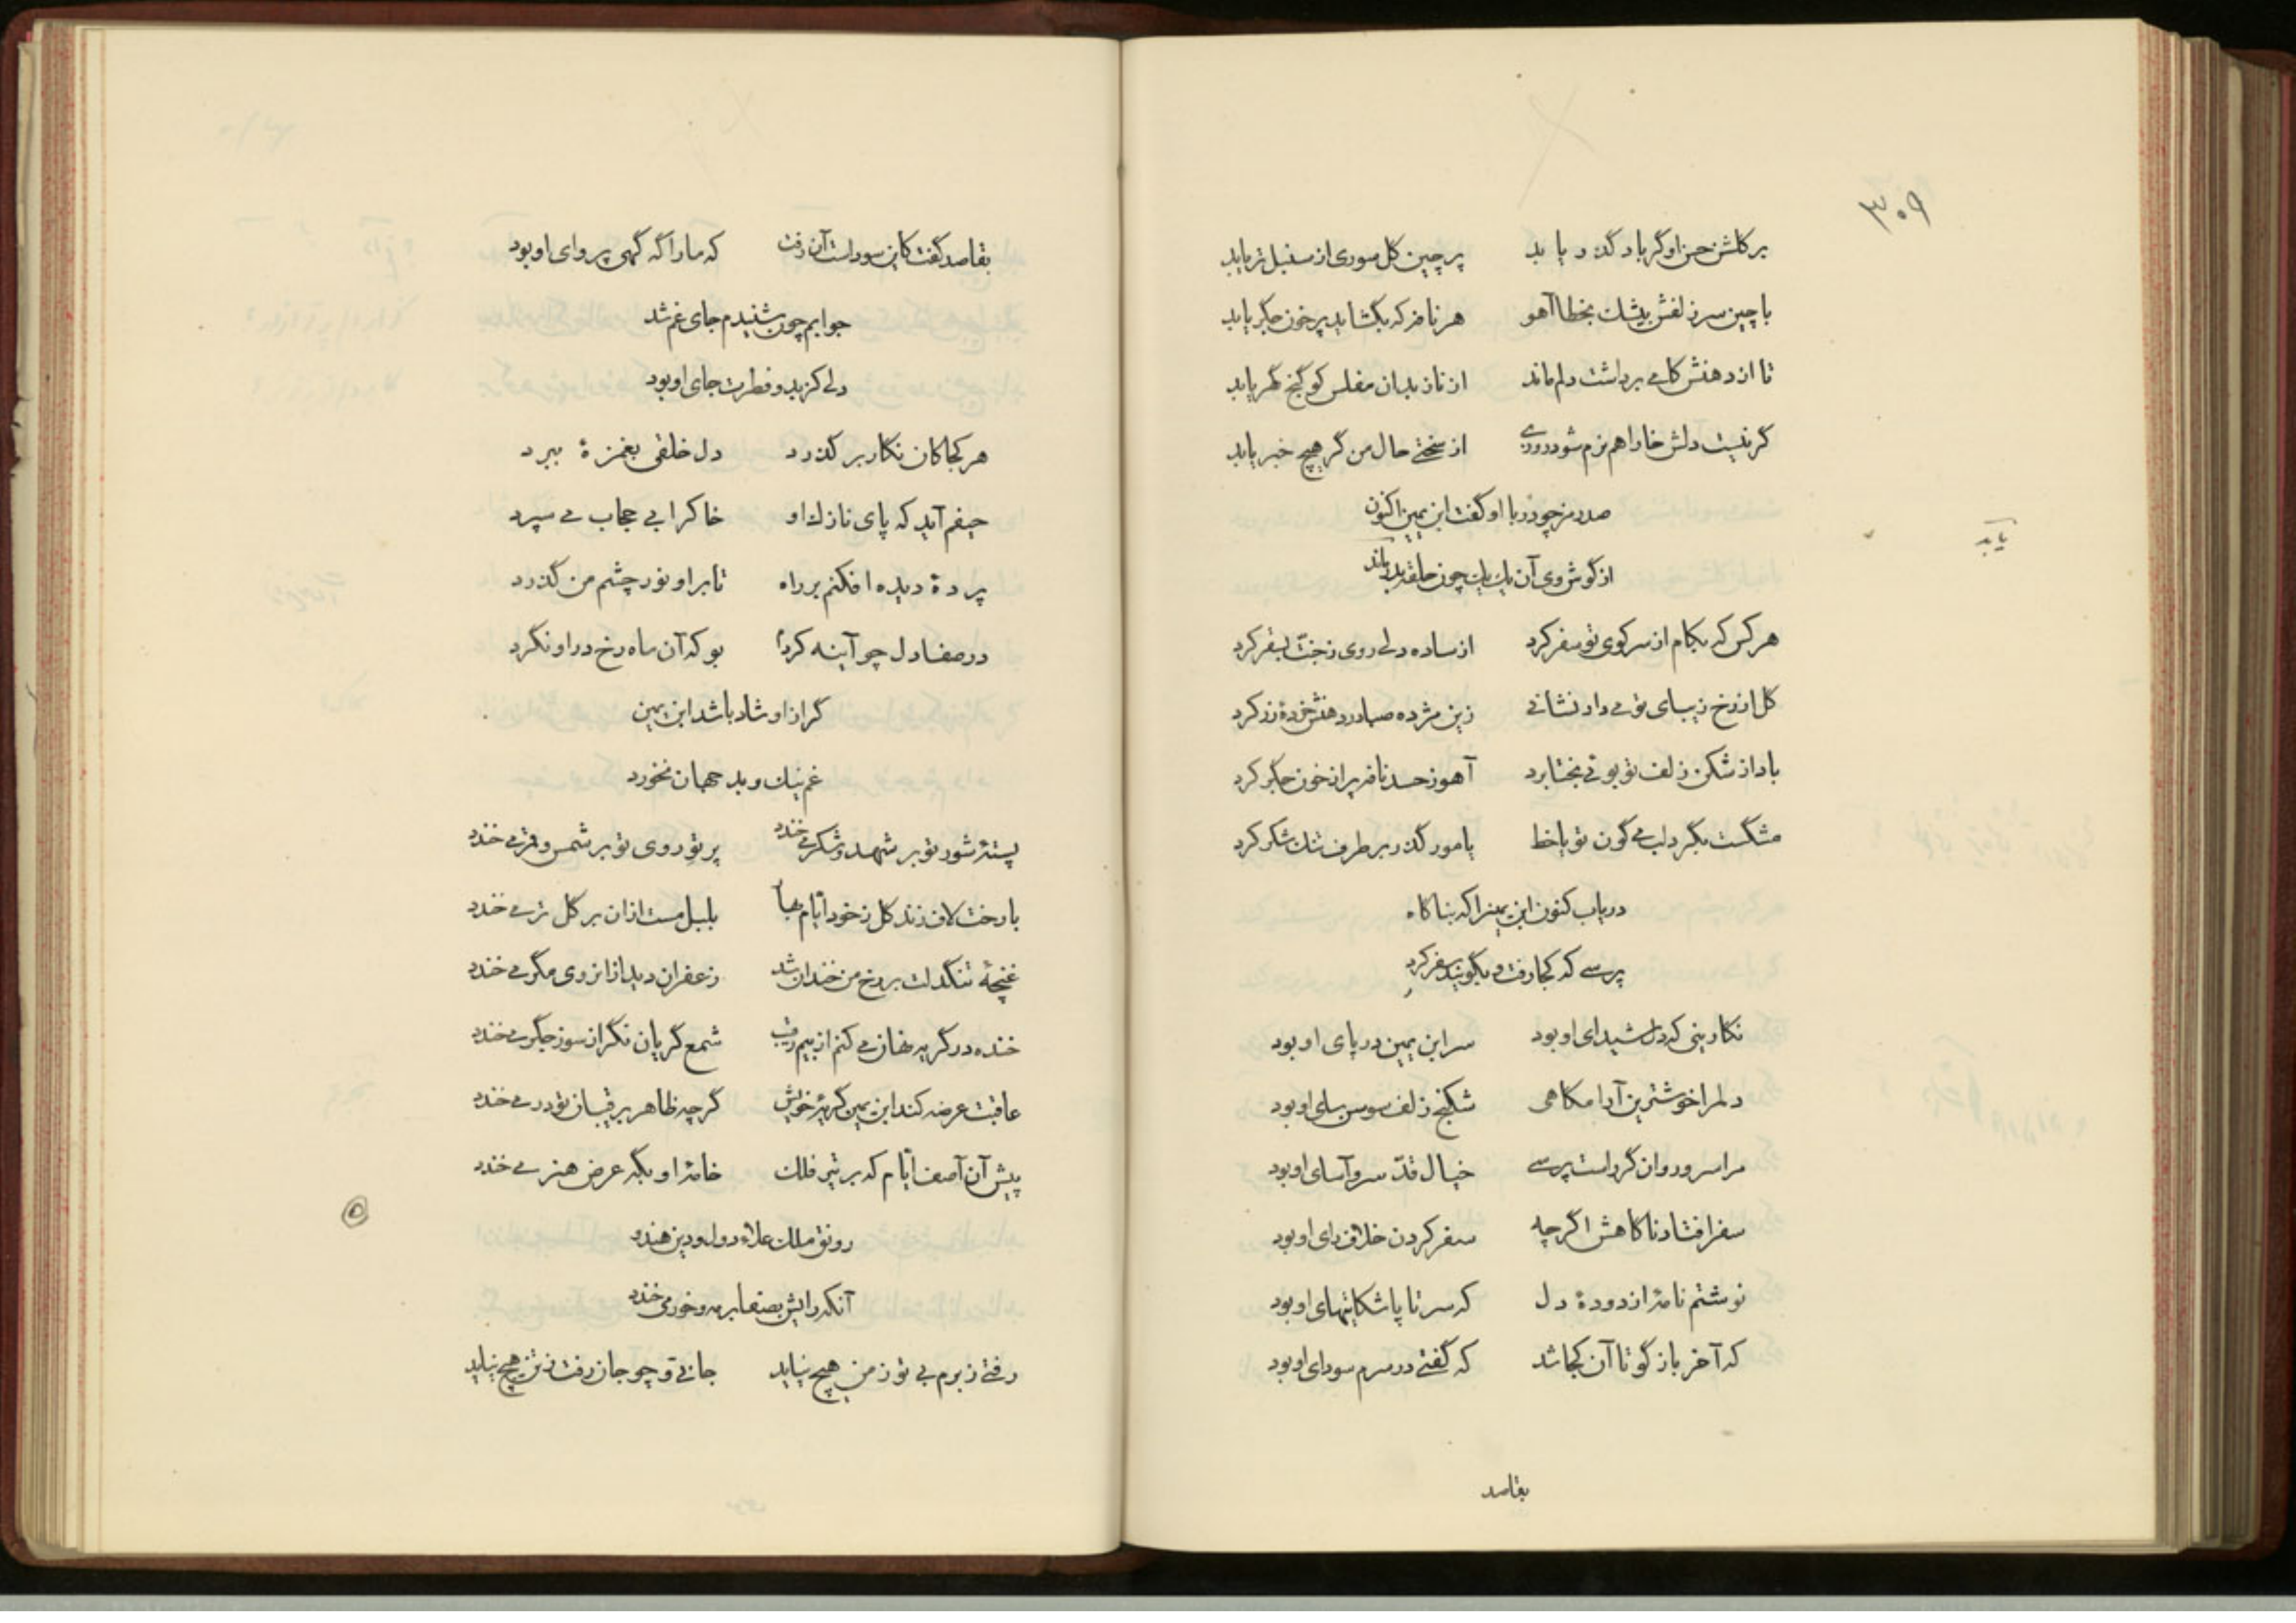 ۳۰۹
بر گلشن حسن او گر باد گذر یابد پرچین گل سوری از سنبل تر یابد
با چین سر زلفش بیشک بخطا آهو هر نافه که بگشاید پر خون جگر یابد
تا از دهنش کامی برداشت دلم ماند از ناز بدان مفلس کو گنج گهر یابد
گر نیست دلش خارا هم نرم شود روزی از سختی حال من گر هیچ خبر یابد
صد رمز چو در با او گفت ابن یمین اکنون
یابد
از گوش وی آن یک یک چون حلقه بدر یابد
هر کس که بکام از سر کوی تو سفر کرد از ساده دلی روی ز جنت بسقر کرد
گل از رخ زیبای تو می داد نشانی زین مژده صبا در دهنش خرده زر کرد
باد از شکن زلف تو بوئی بختا برد آهو ز حسد نافه پر از خون جگر کرد
مشگست بگرد لب می گون تو یا خط یا مور گذر بر طرف تنک شکر کرد
دریاب کنون ابن یمین را که بناگاه
پرسی که کجا رفت و بگویند سفر کرد
نگارینی که دل شیدای او بود سر ابن یمین در پای او بود
دلم را خوشترین آرامگاهی شکنج زلف سوسن سای او بود
مرا سرو روان گر راست پرسی خیال قدّ سرو آسای او بود
سفر افتاد ناگاهش اگر چه سفر کردن خلاف رای او بود
نوشتم نامهٔ از دودهٔ دل که سر تا پا شکایتهای او بود
که آخر باز گو تا آن کجا شد که گفتی در سرم سودای او بود
بقاصد
بقاصد گفت کاین سوداست آن رفت که ما را گه گهی پروای او بود
جوابم چون شنیدم جای غم شد
دلی کز بدو فطرت جای او بود
هر کجا کان نگار بر گذرد دل خلقی بغمزهٔ ببرد
حیفم آید که پای نازک او خاک را بی حجاب می سپرد
پردهٔ دیده افکنم بر راه تا بر او نور چشم من گذرد
در صفا دل چو آینه کردم بو که آن ماه رخ در او نگرد
گر از او شاد باشد ابن یمین
غم نیک و بد جهان نخورد
پستهٔ شور تو بر شهد و شکر می خندد پرتو روی تو بر شمس و قمر می خندد
با رخت لاف زند گل ز خود ایام بهار بلبل مست از ان بر گل تر می خندد
غنچهٔ تنگدلت بر رخ من خندان شد زعفران دید از انروی مگر می خندد
خنده در گریه نهان می کنم از بیم رقیب شمع گریان نگر از سوز جگر می خندد
عاقبت عرضه کند ابن یمین گریهٔ خویش گرچه ظاهر برقیبان تو در می خندد
پیش آن آصف ایّام که بر تیر فلک خامهٔ او بگه عرض هنر می خندد
رونق ملک علاء دول و دین هندو
آنکه رایش بصفا بر مه و خور می خندد
رفتی ز برم بی تو ز من هیچ نیاید جانی تو چو جان رفت ز تن هیچ نیاید